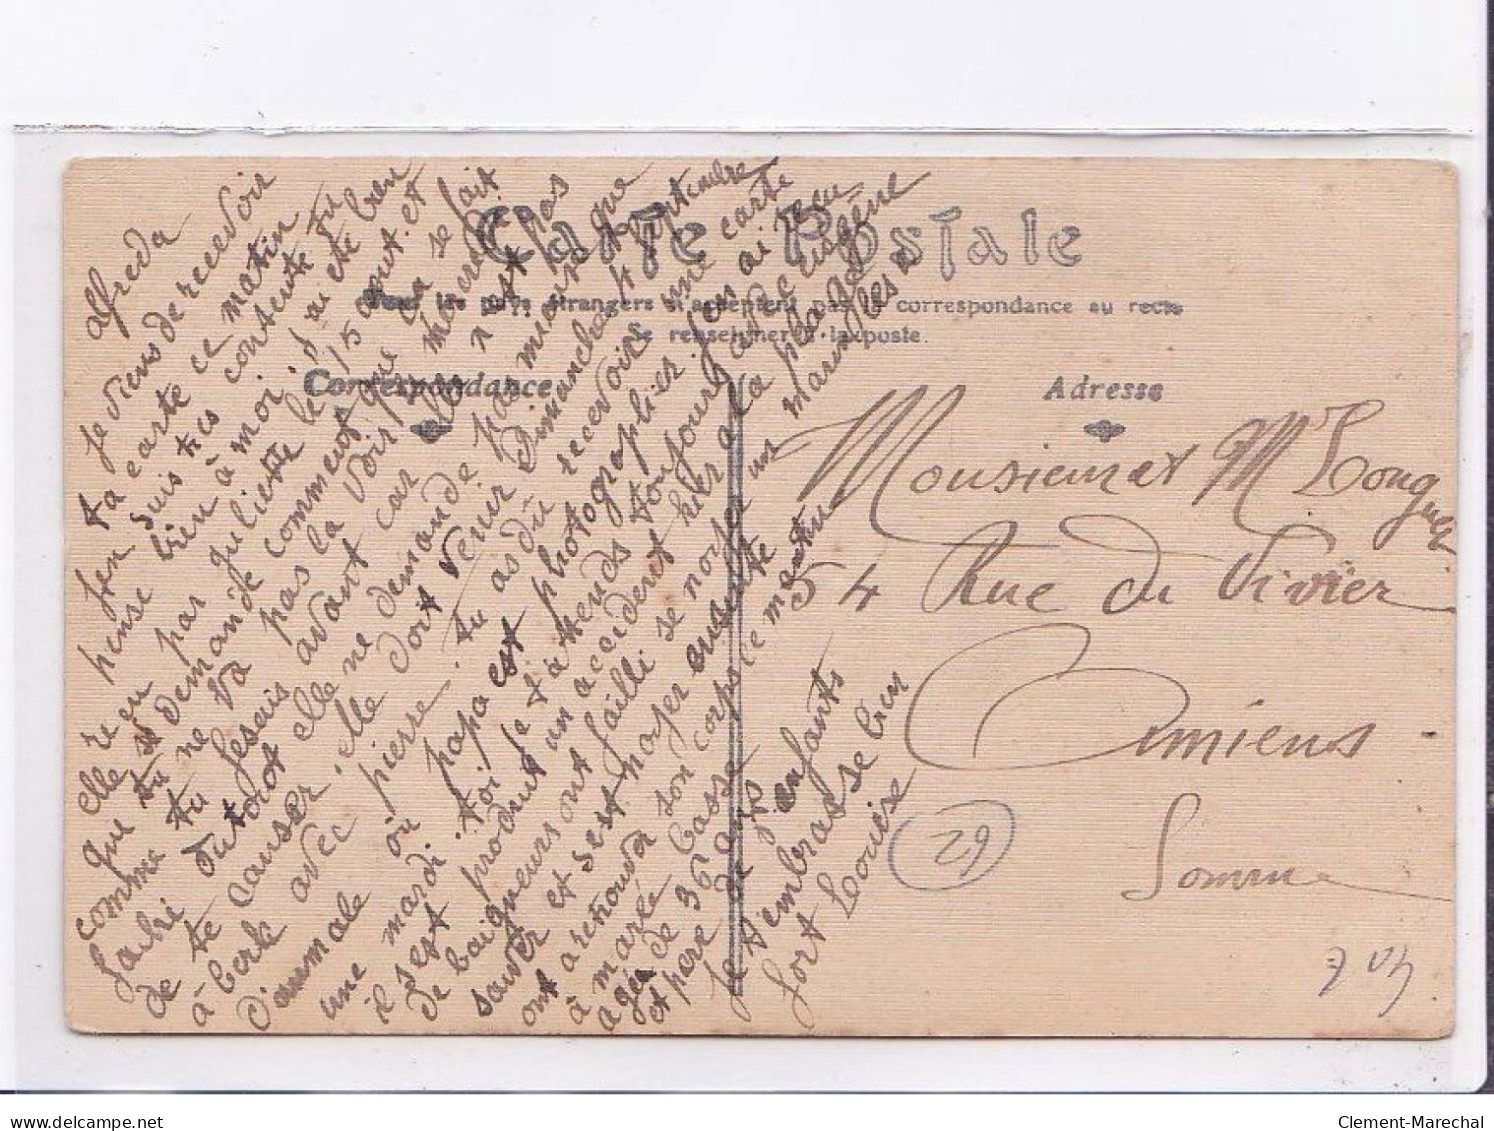 Carte Postale
Tous les pays étrangers n'acceptent pas la correspondance au recto
Se renseigner à la poste.
Correspondance
Adresse
alfreda
je viens de recevoir
ta carte ce matin
j'en suis très contente tu
pense bien à moi j'ai été bien
elle reçu par juliette le 15 aout. et
que tu demande comment que ça se fait
comme tu ne va pas la voir
avant car elle n'est pas
plutot elle ne demande pas mieux que
de te causer. elle doit venir Dimanche 4 septembre
à berk avec pierre. tu as dû recevoir une carte
d'aumale ou papa est photographier
une toi je t'attends toujours
mardi
il s'est produit un accident hier a la plage
de baigneurs ont failli se noyer un
sauver et s'est noyer ensuite
ont a retrouver son corps le matin
à marée basse
agée de 36 ans
et père de enfants
je t'embrasse bien
fort Louise
Monsieur et M Longuet
54 Rue du Vivier
Amiens
Somme
29
Clement-Marechal
delcampe.net